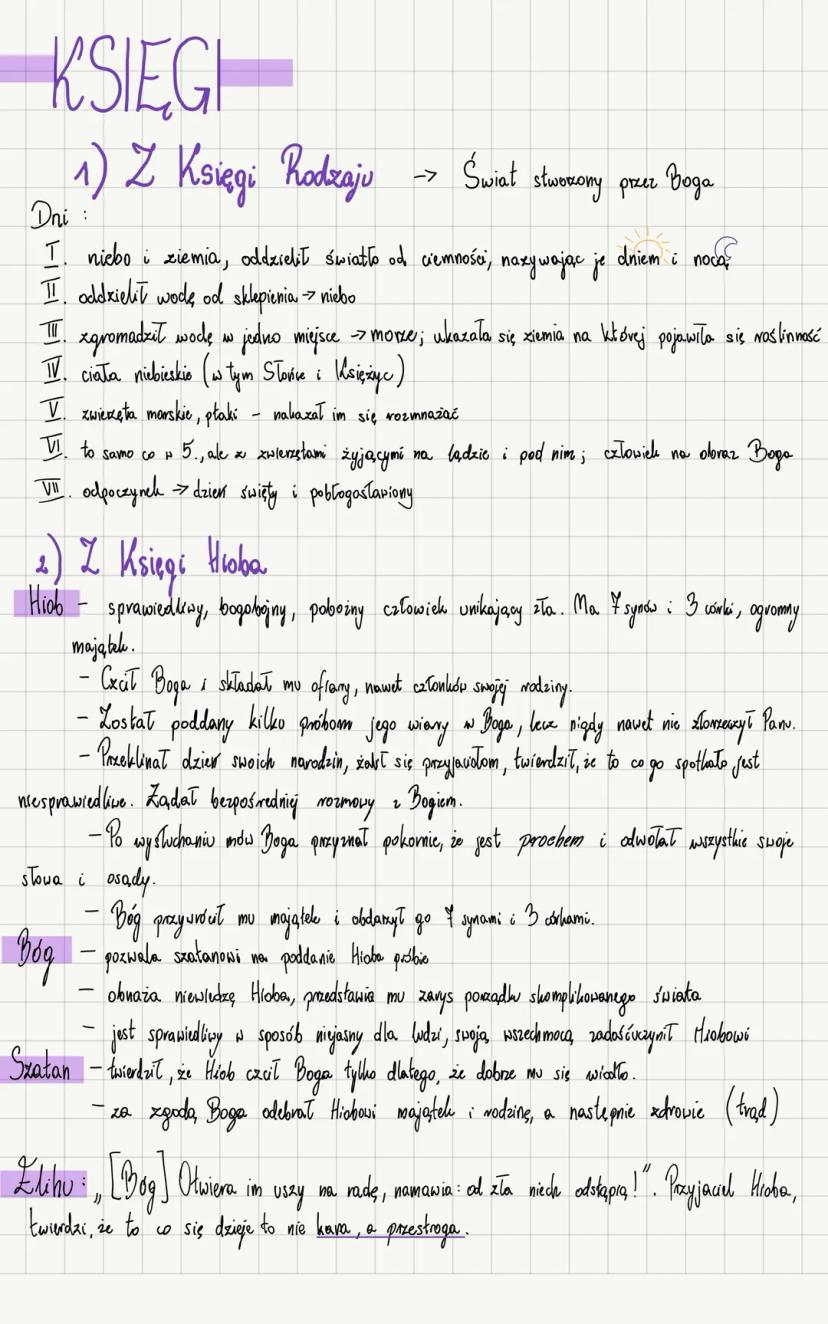 KSIĘGI
1) Z Księgi Rodzaju → Świat stworzony przez Boga
Dni :
I. niebo i ziemia, oddzielił światło od ciemności, nazywając je dniem i nocą
II. oddzielił wodę od sklepienia → niebo
III. zgromadził wodę w jedno miejsce → morze; ukazała się ziemia na której pojawiła się roślinność
IV. ciała niebieskie (w tym Słońce i Księżyc)
V. zwierzęta morskie, ptaki - nakazał im się rozmnażać
VI. to samo co w 5., ale z zwierzętami żyjącymi na lądzie i pod nim; człowiek na obraz Boga
VII. odpoczynek → dzień święty i pobłogosławiony
2) Z Księgi Hioba
Hiob - sprawiedliwy, bogobojny, pobożny człowiek unikający zła. Ma 7 synów i 3 córki, ogromny
majątek.
- Czcił Boga i składał mu ofiary, nawet członków swojej rodziny.
- Został poddany kilku próbom jego wiary w Boga, lecz nigdy nawet nie złorzeczył Panu.
- Przeklinał dzień swoich narodzin, żalił się przyjaciołom, twierdził, że to co go spotkało jest
niesprawiedliwe. Żądał bezpośredniej rozmowy z Bogiem.
- Po wysłuchaniu mów Boga przyznał pokornie, że jest prochem i odwołał wszystkie swoje
słowa i osądy.
- Bóg przywrócił mu majątek i obdarzył go 7 synami i 3 córkami.
Bóg - pozwala szatanowi na poddanie Hioba próbie
- obnaża niewiedzę Hioba, przedstawia mu zarys porządku skomplikowanego świata
- jest sprawiedliwy w sposób niejasny dla ludzi, swoją wszechmocą zadośćuczynił Hiobowi
Szatan - twierdził, że Hiob czcił Boga tylko dlatego, że dobrze mu się wiodło.
- za zgodą Boga odebrał Hiobowi majątek i rodzinę, a następnie zdrowie (trąd)
Elihu: „[Bóg] Otwiera im uszy na radę, namawia: od zła niech odstąpią!”. Przyjaciel Hioba,
twierdzi, że to co się dzieje to nie kara, a przestroga.